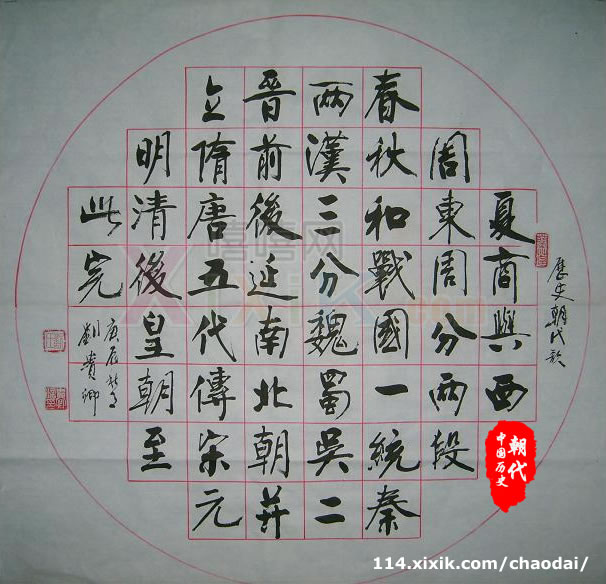 歷史朝代歌
夏商與西
周東周分兩段
春秋和戰國一統秦
兩漢三分魏蜀吳二
晉前後延南北朝并
立隋唐五代傳宋元
明清後皇朝至
此完
庚辰
劉貴卿
朝代
中国历史
嘻嘻网
xixik.com
114.xixik.com/chaodai/